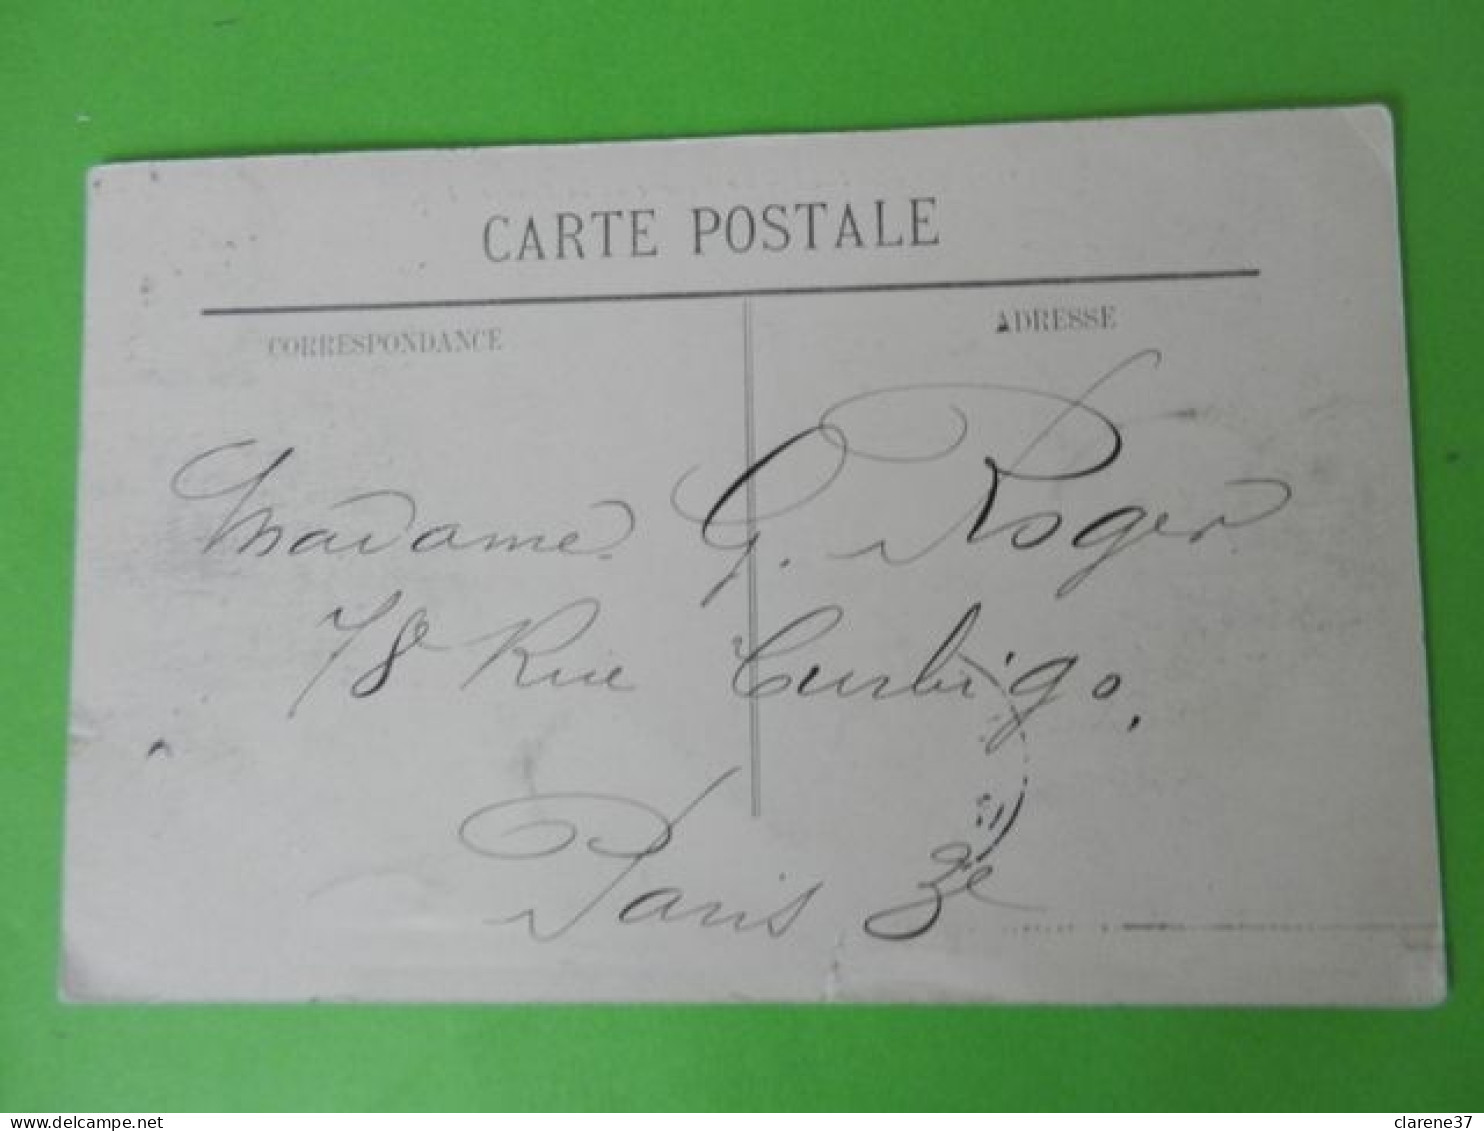 CARTE POSTALE
CORRESPONDANCE
ADRESSE
Madame G. Roger
78 Rue Turbigo,
Paris 3e
clarene37